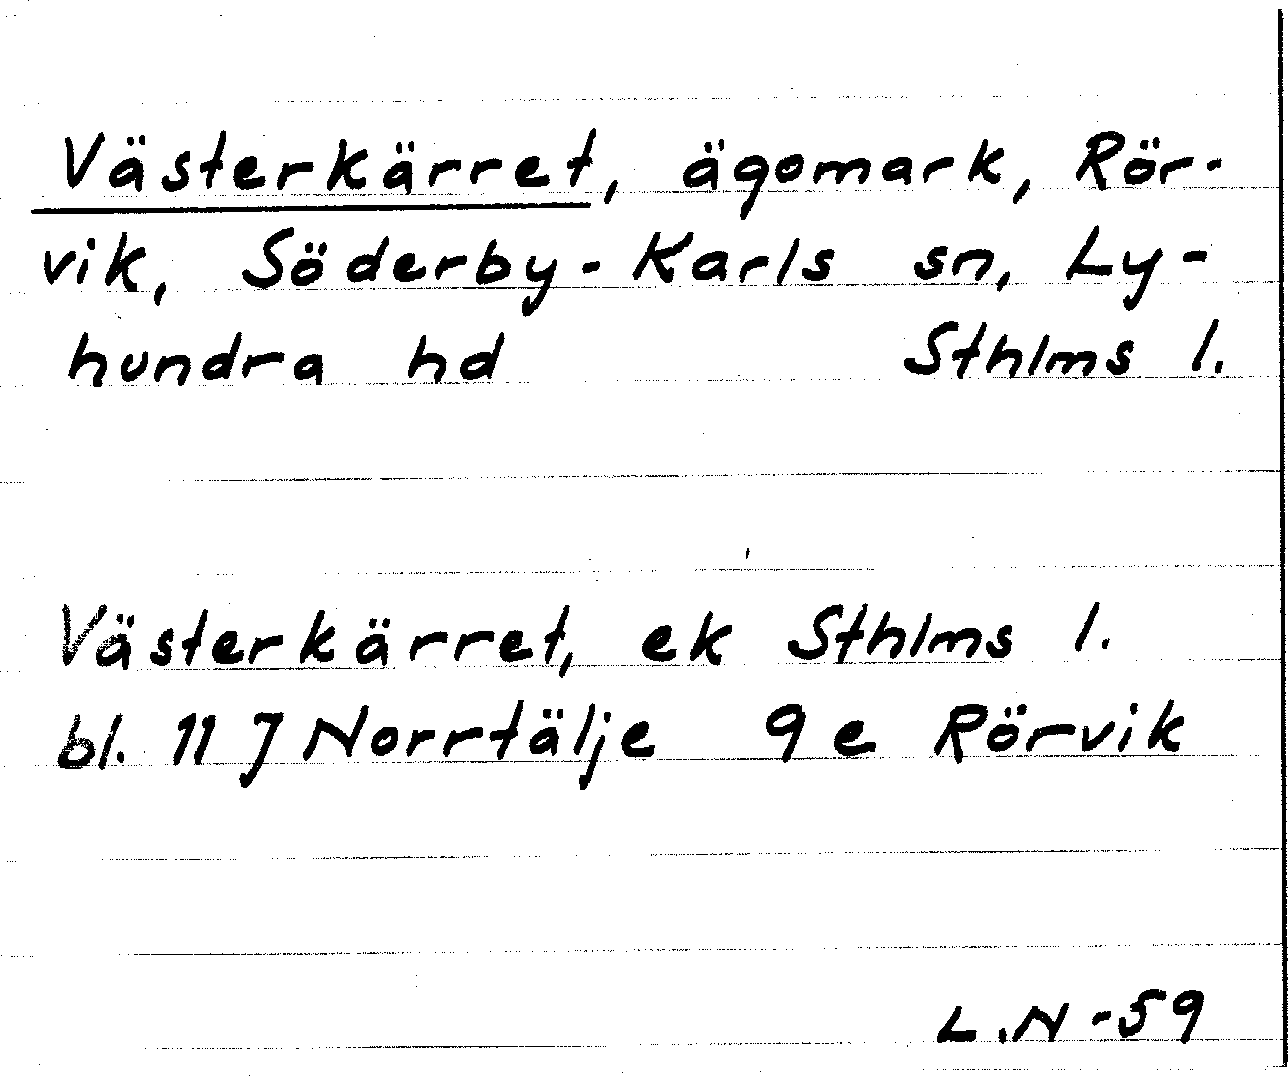 Västerkärret, ägomark, Rör-
vik, Söderby-Karls sn, Ly-
hundra hd Sthlms l.
Västerkärret, ek Sthlms l.
bl. 11 J Norrtälje 9 e Rörvik
L.N -59